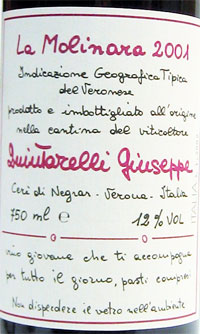 La Molinara 2001
Indicazione Geografica Tipica
del Veronese
prodotto e imbottigliato all'origine
nella cantina del viticoltore
Quintarelli Giuseppe
Cerè di Negrar - Verona - Italia
750 ml e 12% VOL
vino giovane che ti accompagna
per tutto il giorno, pasti compresi
Non disperdere il vetro nell'ambiente
ITALIA